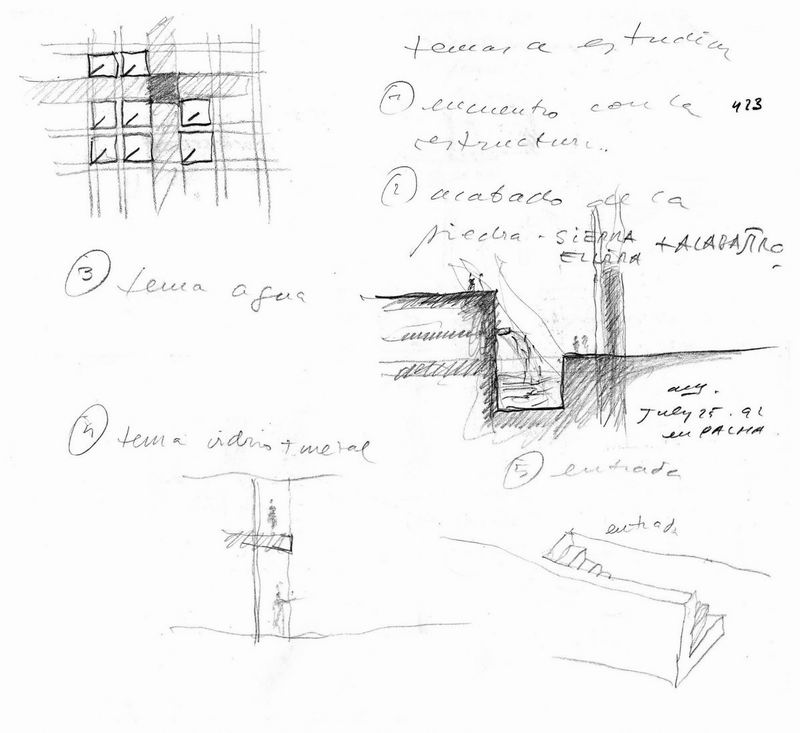 temas a estudiar
1 encuentro con la
423
estructura..
2 acabado de la
piedra - SIERRA + ALABASTRO
3 tema agua
July 25. 92
en PALMA.
4 tema vidrio + metal
5 entrada
entrada